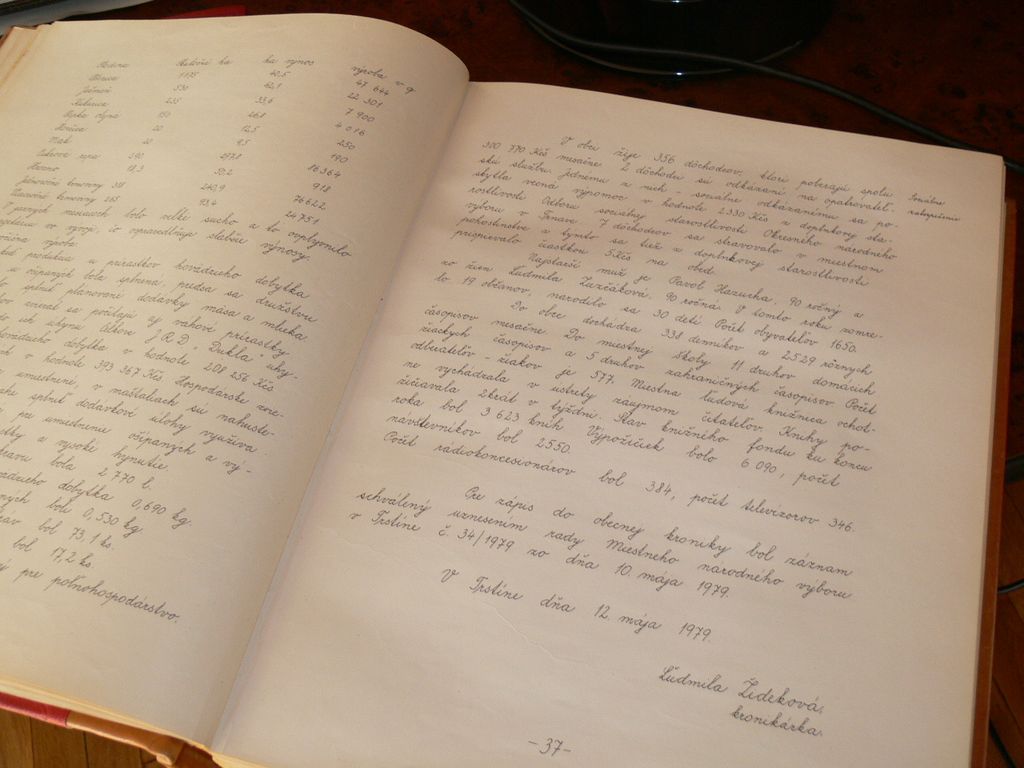 Plodina Hektáre ha ha výnos výroba v q
Pšenica 1175 40,5 47 644
Jačmeň 530 42,1 22 301
Kukurica 235 33,6 7 900
150 26,8 4 016
Horčica 20 12,5 250
Mak 20 9,5 190
Cukrová repa 590 277,8 16364
Seno 18,3 50,2 918
Jednoročné krmoviny 318 240,9 76622
Viacročné krmoviny 265 93,4 24751
V jarných mesiacoch bolo veľké sucho a to ovplyvnilo
vegetáciu vo vývoji, čo ospravedlňuje slabšie výnosy.
výroba:
produkcia u prírastkov hovädzieho dobytka
u ošípaných bola splnená, predsa sa družstvu
splniť plánované dodávky mäsa a mlieka
zvierat sa počítajú aj váhové prírastky
ich úhynu. Celkove JRD "Dukla" uhy-
hovädzieho dobytka v hodnote 208 256 Kčs
v hodnote 393 367 Kčs. Hospodárske zvie-
umiestnené, v maštaliach sú nahuste-
splniť dodávkové úlohy využíva
pre umiestnenie ošípaných a vý-
a vysoké hynutie
bola 2 770 l.
hovädzieho dobytka 0,690 kg
boli 0,530 kg
bol 73,1 ks.
bol 17,2 ks.
pre poľnohospodárstvo.
V obci žije 356 dôchodcov, ktorí poberajú spolu
300 770 Kčs mesačne. 2 dôchodci sú odkázaní na opatrovateľ-
skú službu. Jednému z nich - sociálne odkázanému sa po-
skytla vecná výpomoc v hodnote 2 330 Kčs z doplnkovej sta-
rostlivosti Odboru sociálnej starostlivosti Okresného národného
výboru v Trnave. 7 dôchodcov sa stravovalo v miestnom
pohostinstve a týmto sa tiež z doplnkovej starostlivosti
prispievalo čiastkou 5 Kčs na obed.
Sociálne
zabezpečenie
Najstarší muž je Pavol Hazucha, 90 ročný a
zo žien Ludmila Zuzčáková, 90 ročná. V tomto roku zomre-
lo 19 občanov, narodilo sa 30 detí. Počet obyvateľov 1650.
Do obce dochádza 338 denníkov a 2529 rôznych
časopisov mesačne. Do miestnej školy 11 druhov domácich
žiackych časopisov a 5 druhov zahraničných časopisov. Počet
odberateľov - žiakov je 577. Miestna ľudová knižnica ochot-
ne vychádzala v ústrety záujmom čitateľov. Knihy po-
žičiavala 2krát v týždni. Stav knižného fondu ku koncu
roka bol 3 623 kníh. Výpožičiek bolo 6 090, počet
návštevníkov bol 2550.
Počet rádiokoncesionárov bol 384, počet televízorov 346.
Pre zápis do obecnej kroniky bol záznam
schválený uznesením rady Miestneho národného výboru
v Trstíne č. 34/1979 zo dňa 10. mája 1979.
V Trstíne dňa 12. mája 1979.
Ľudmila Žideková,
kronikárka.
-37-